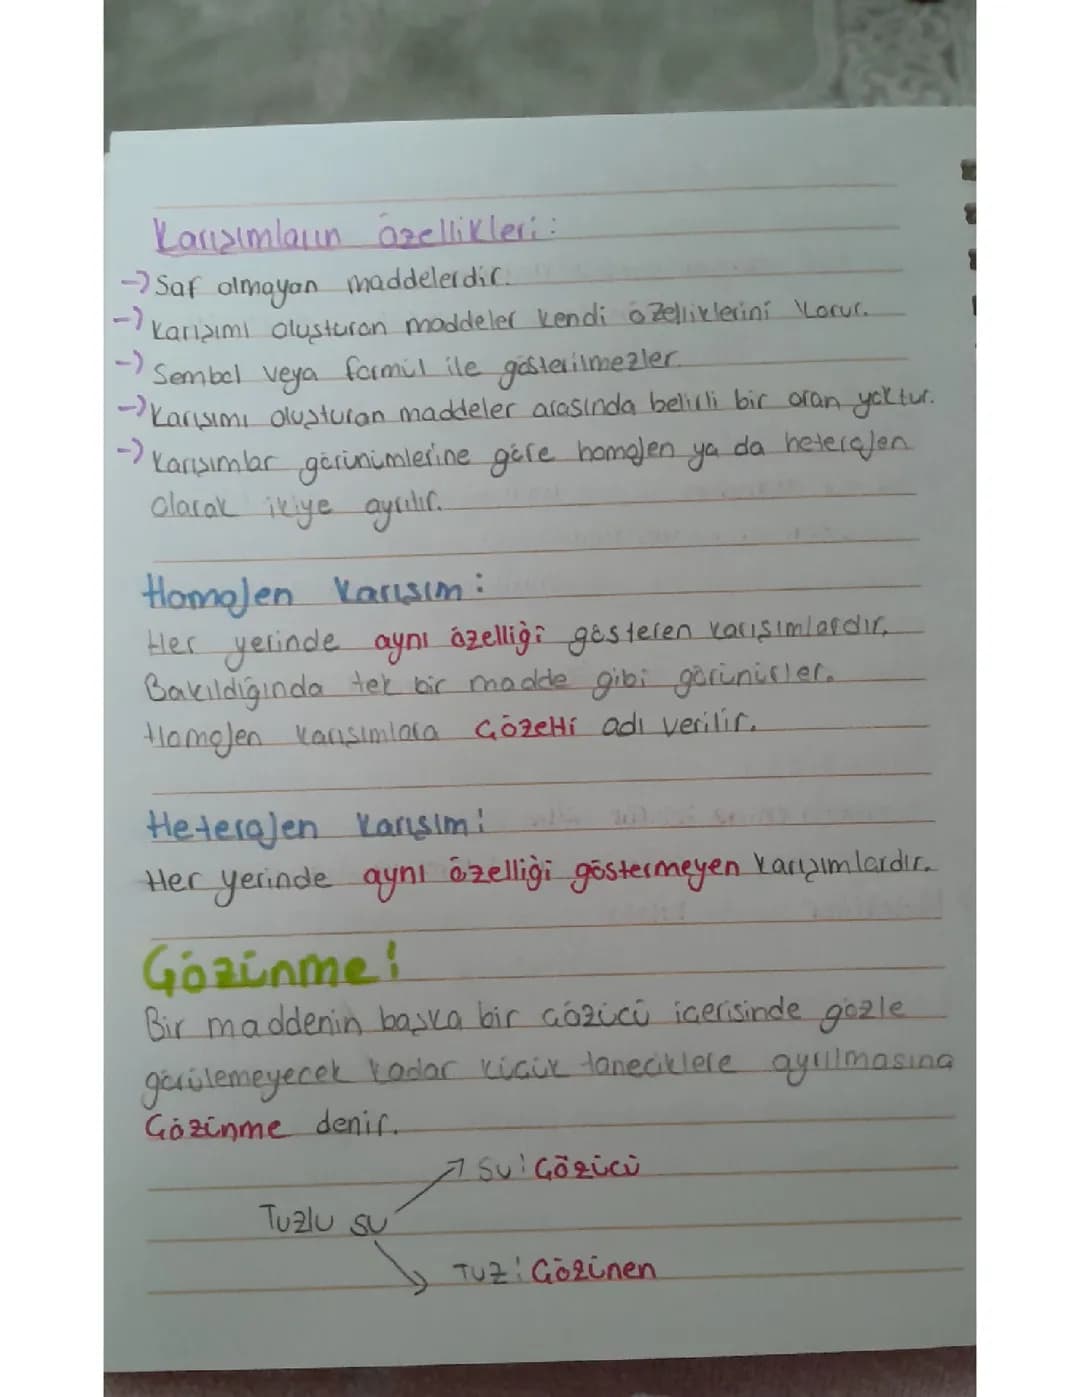 Karışımların özellikleri:
→ Saf olmayan maddelerdir.
→ Karışımı oluşturan maddeler kendi özelliklerini korur.
→ Sembol veya formül ile gösterilmezler.
→ Karışımı oluşturan maddeler arasında belirli bir oran yoktur.
→ Karışımlar görünümlerine göre homojen ya da heterojen
olarak ikiye ayrılır.
Homojen Karışım:
Her yerinde aynı özelliği gösteren karışımlardır.
Bakıldığında tek bir madde gibi görünürler.
Homojen karışımlara Çözelti adı verilir.
Heterojen Karışım:
Her yerinde aynı özelliği göstermeyen karışımlardır.
Çözünme:
Bir maddenin başka bir çözücü içerisinde gözle
görülemeyecek kadar küçük taneciklere ayrılmasına
Çözünme denir.
→ Su: Çözücü
Tuzlu su
→ Tuz: Çözünen